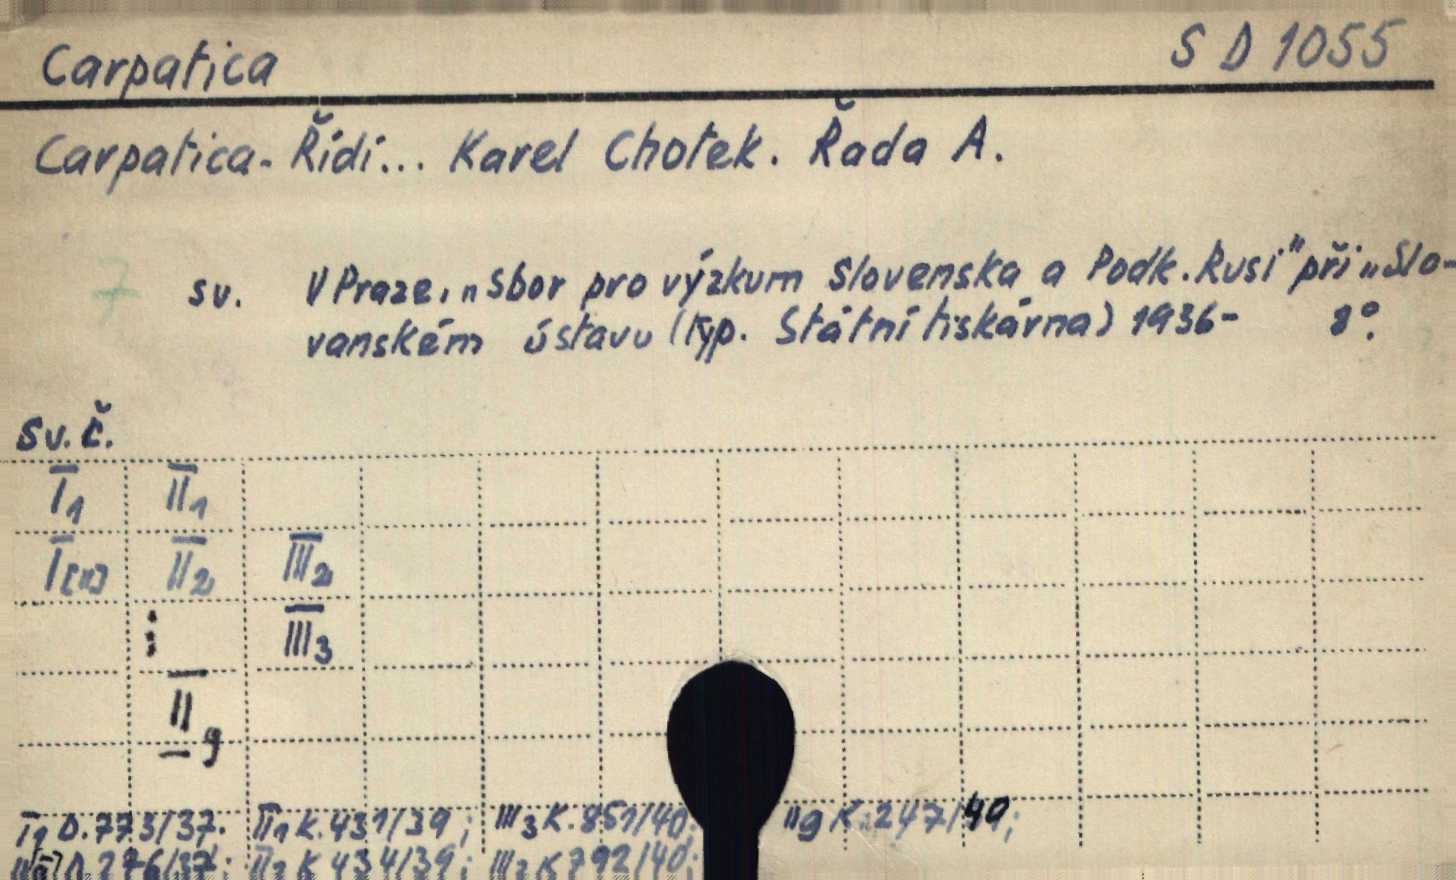 Carpatica S D 1055
Carpatica - Řídí... Karel Chotek. Řada A.
7 sv. V Praze, „Sbor pro výzkum Slovenska a Podk. Rusi" při „Slo-
vanském ústavu (typ. Státní tiskárna) 1936- 8°.
Sv. Č.
I1 II1
I[II] II2 III2
: III3
II9
I1 D.773/37. II1 K.431/39; III3 K.851/40; II9 K.247/40;
D.276/37; II2 K 434/39; III2 K 792/40;